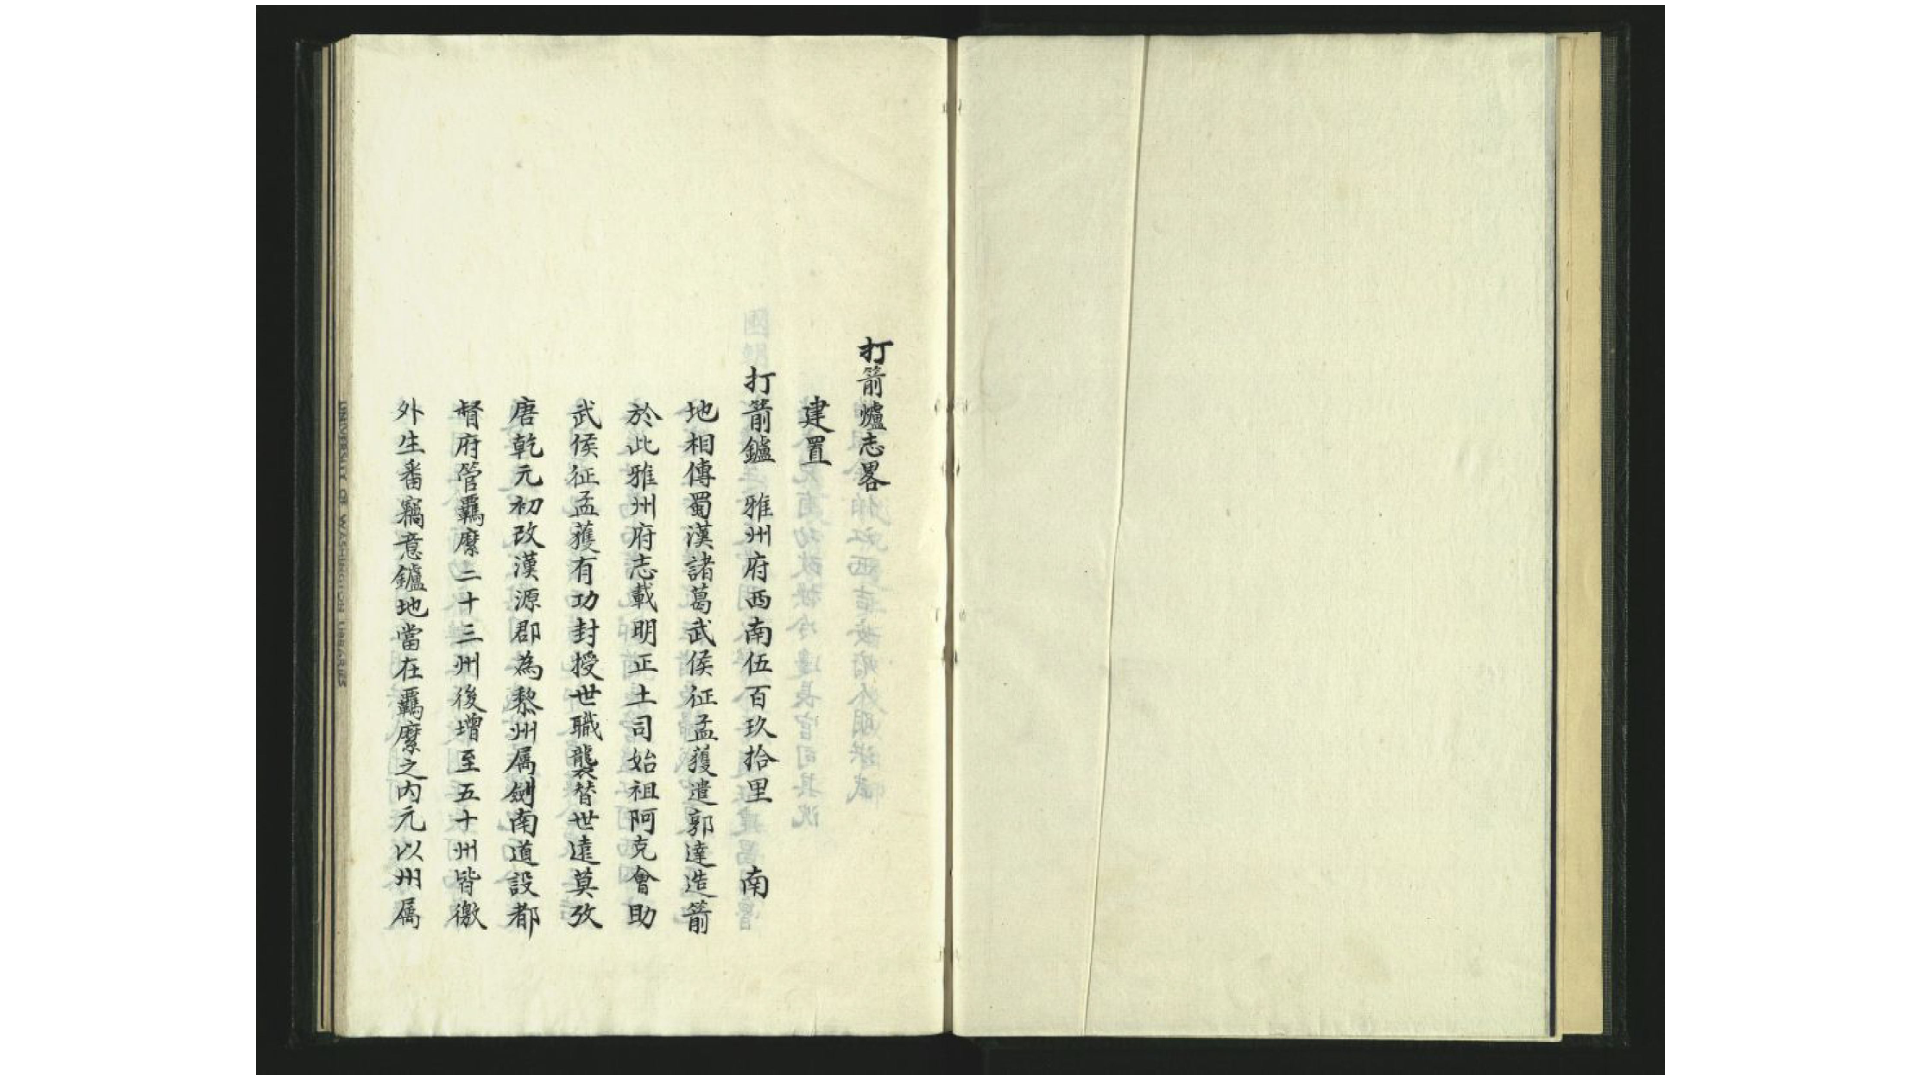 打箭爐志畧
建置
打箭鑪 雅州府西南伍百玖拾里 南
地相傳蜀漢諸葛武侯征孟獲遣郭達造箭
於此雅州府志載明正土司始祖阿克會助
武侯征孟獲有功封授世職襲替世遠莫攷
唐乾元初改漢源郡為黎州属劍南道設都
督府管羈縻二十三州後增至五十州皆徼
外生番竊意鑪地當在羈縻之内元以州属
UNIVERSITY OF WASHINGTON LIBRARIES